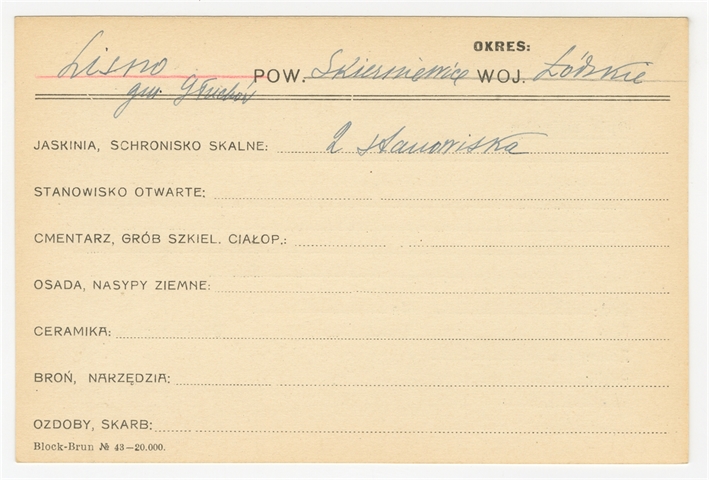 OKRES:
Lisno POW. Skierniewice WOJ. Łódzkie
gm. Głuchów
JASKINIA, SCHRONISKO SKALNE: 2 stanowiska
STANOWISKO OTWARTE:
CMENTARZ, GRÓB SZKIEL. CIAŁOP.:
OSADA, NASYPY ZIEMNE:
CERAMIKA:
BROŃ, NARZĘDZIA:
OZDOBY, SKARB:
Block-Brun № 43—20.000.